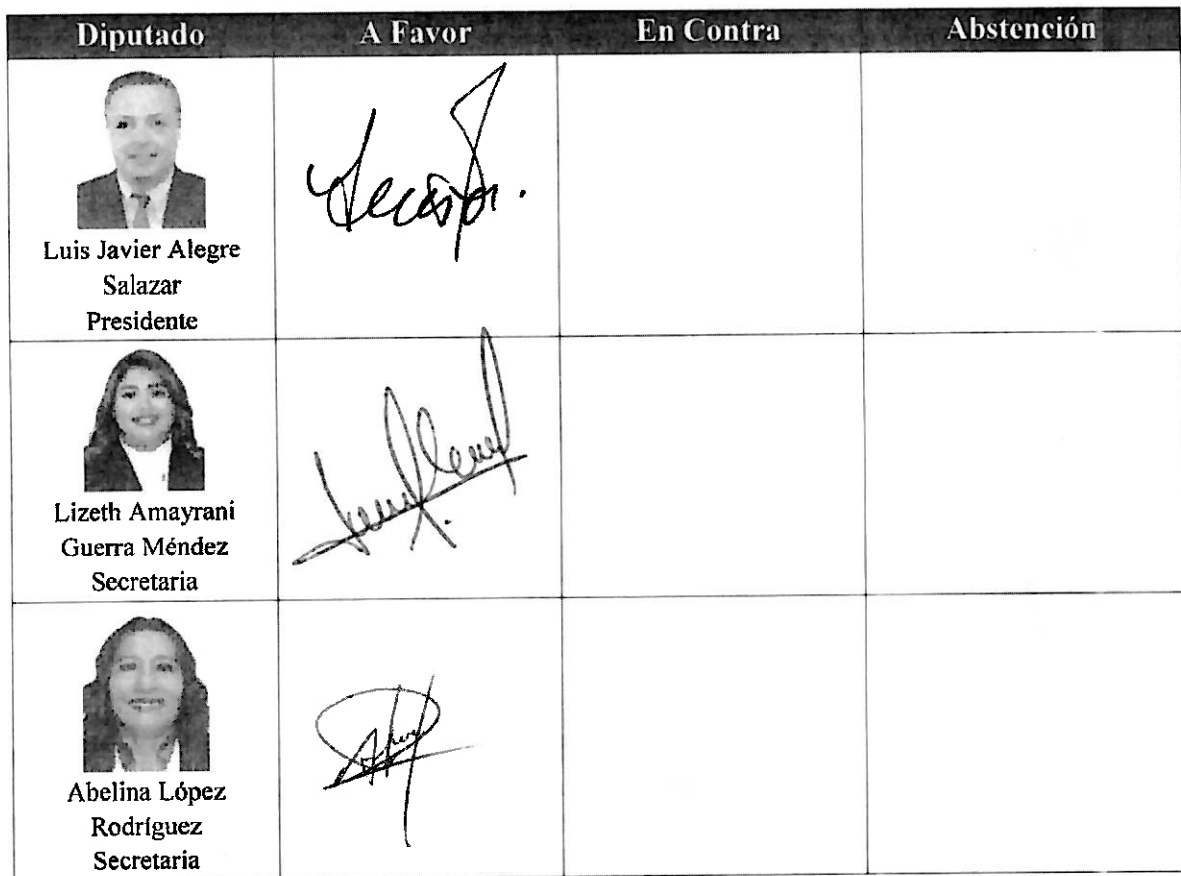 Diputado A Favor En Contra Abstención
Luis Javier Alegre
Salazar
Presidente
Lizeth Amayrani
Guerra Méndez
Secretaria
Abelina López
Rodríguez
Secretaria